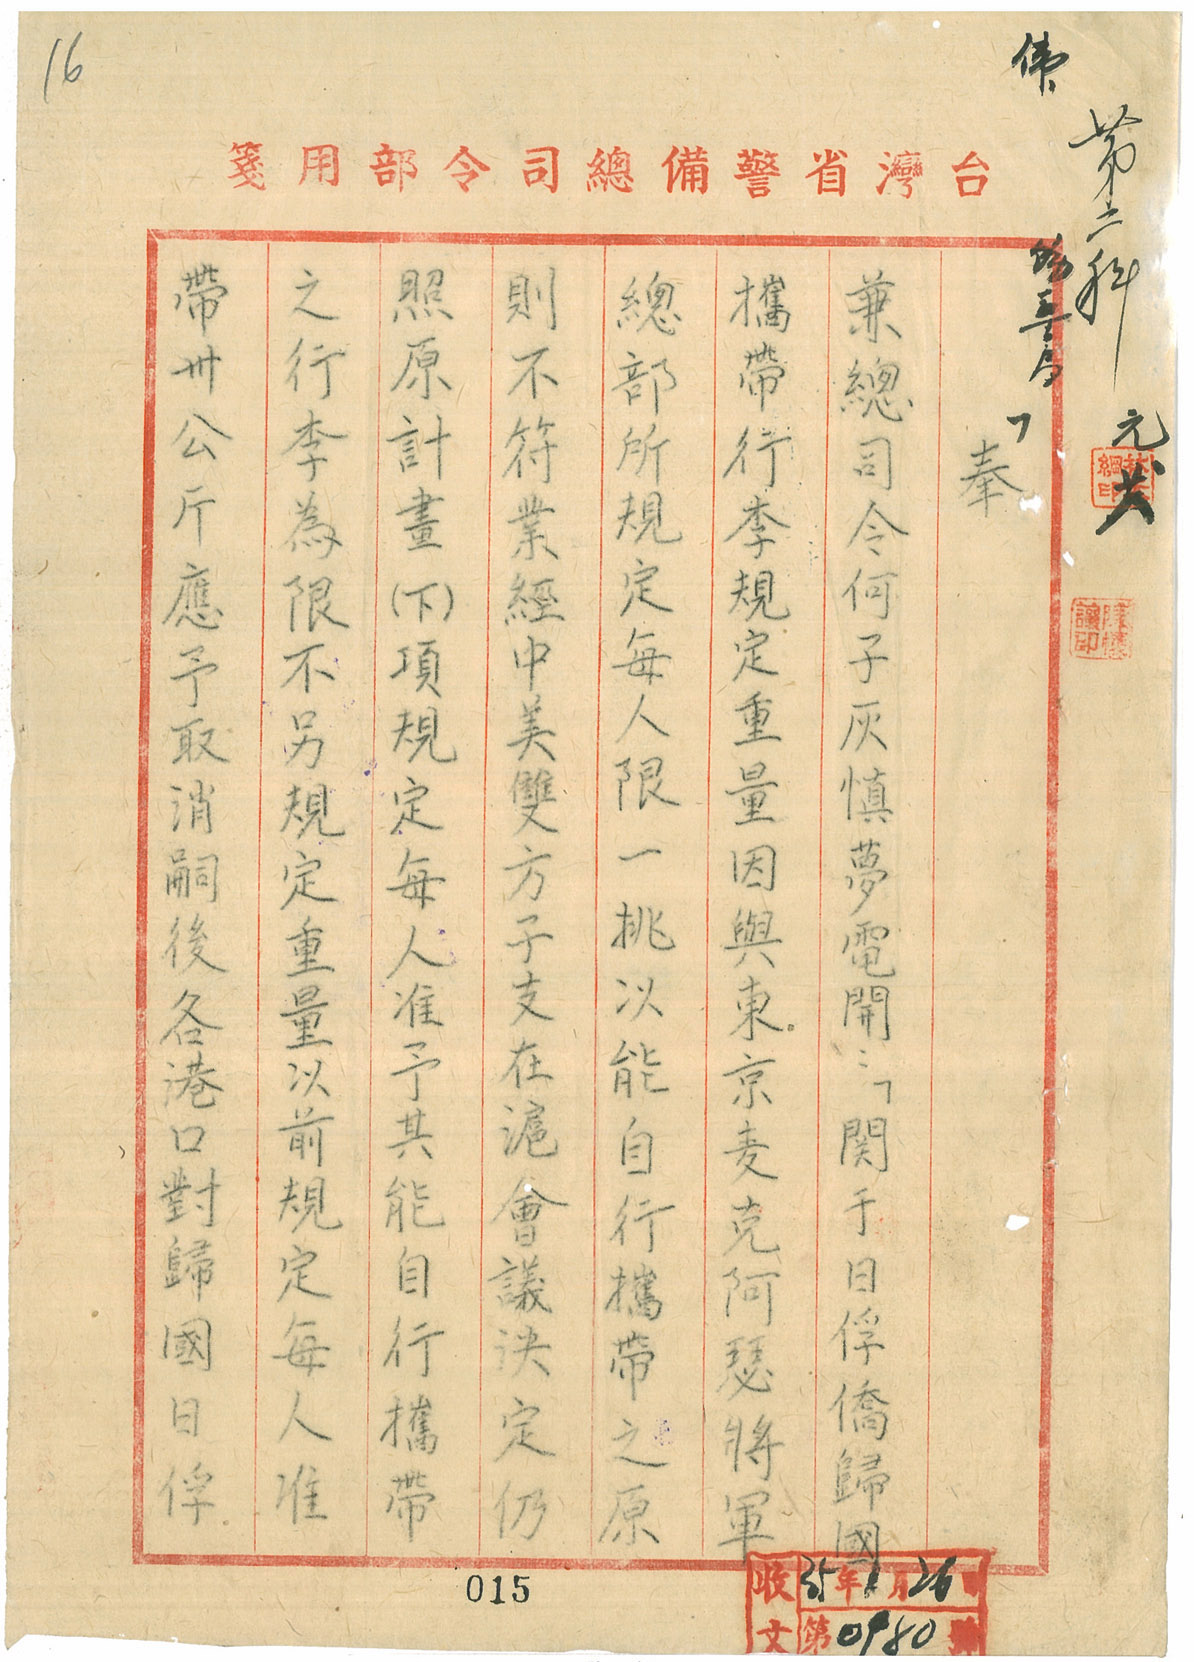 16
台灣省警備總司令部用箋
第二科
奉
兼總司令何子灰慎夢電開：「関于日俘僑歸國
攜帶行李規定重量因與東京麦克阿瑟將軍
總部所規定每人限一挑以能自行攜帶之原
則不符業經中美雙方子支在滬會議決定仍
照原計畫(下)項規定每人准予其能自行攜帶
之行李為限不另規定重量以前規定每人准
帶卅公斤應予取消嗣後各港口對歸國日俘
015
收文 35年1月26日
第0980號